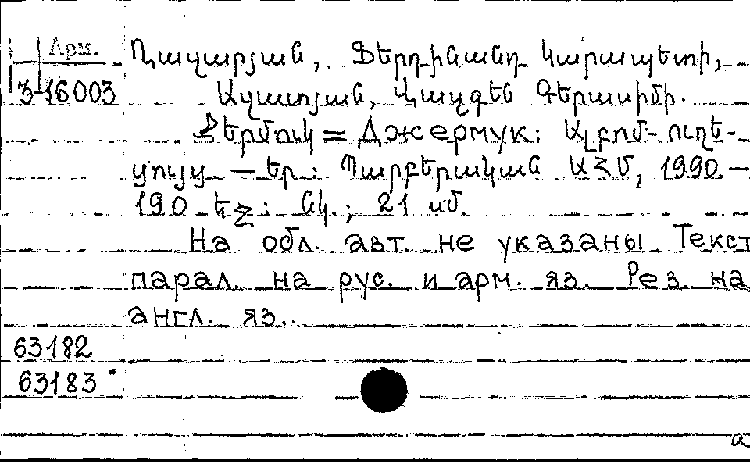 Арм. Ղազարյան, Ֆերդինանդ Կարապետի,
3-16003 Ազատյան, Վազգեն Գերասիմի.
Ջերմուկ = Джермук: Ալբոմ-ուղե-
ցույց — Եր.: Պարբերական ԱՀՄ, 1990.—
190 եջ: նկ.; 21 սմ.
На обл. авт. не указаны. Текст
парал. на рус. и арм. яз. Рез. на
англ. яз..
63182
63183